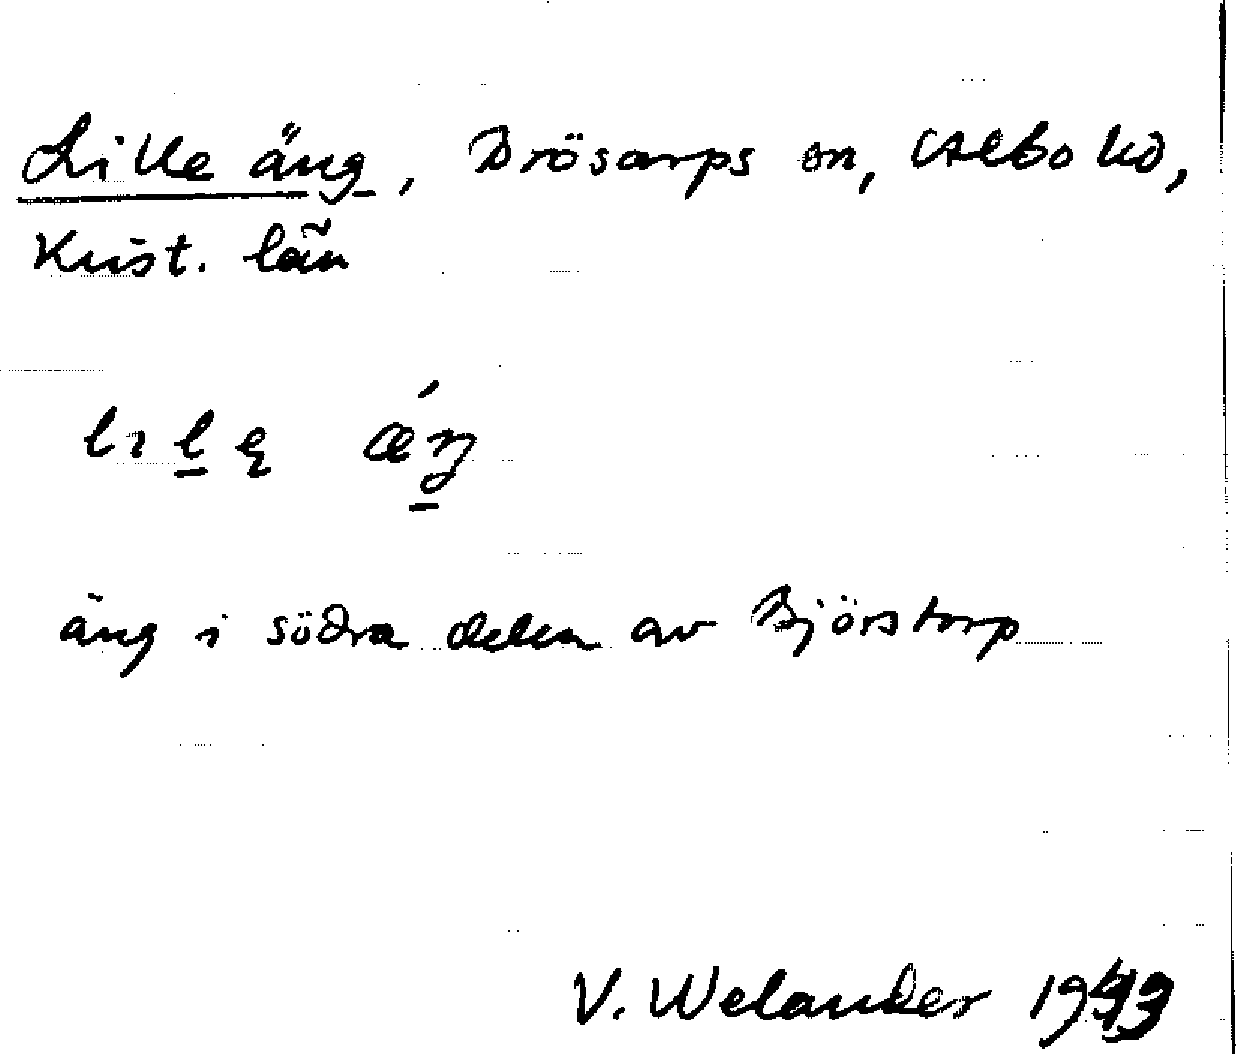 Lille äng, Brösarps sn, Albo hd,
Krist. län
lıḻę ǽŋ̱
äng i södra delen av Björstorp
V. Welander